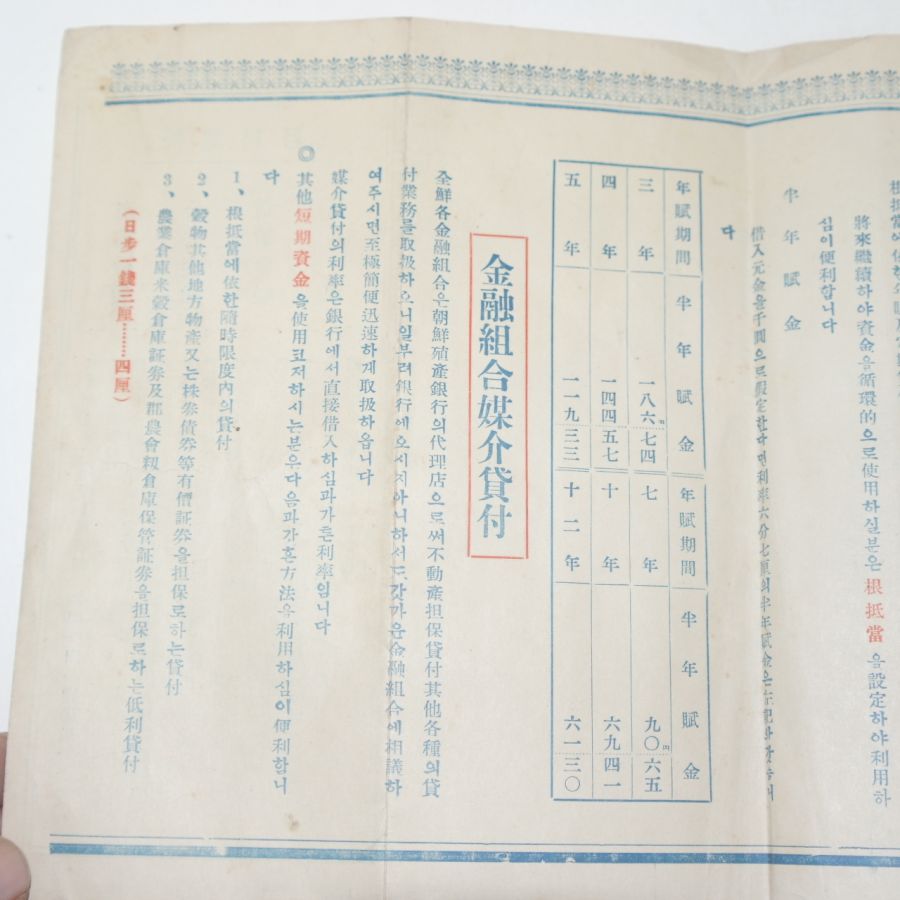 將來繼續하야資金을循環的으로使用하실분은根抵當을設定하야利用하
심이便利합니다
半年賦金
借入元金을千圓으로假定한다면利率六分七厘의半年賦金은左記와갓슴니
다
年賦期間 半年賦金 年賦期間 半年賦金
三年 一八六円七四 七年 九〇円六五
四年 一四四五七 十年 六九四一
五年 一一九三三 十二年 六一三〇
金融組合媒介貸付
全鮮各金融組合은朝鮮殖產銀行의代理店으로써不動產担保貸付其他各種의貸
付業務를取扱하오니일부러銀行에오시지아니하서도갓가운金融組合에相議하
여주시면至極簡便迅速하게取扱하옵니다
媒介貸付의利率은銀行에서直接借入하심과가튼利率임니다
◎其他短期資金을使用코저하시는분은다음과가흔方法을利用하심이便利합니
다
1、根抵當에依한隨時限度內의貸付
2、穀物其他地方物產又는株券債券等有價証券을担保로하는貸付
3、農業倉庫米穀倉庫証券及郡農會籾倉庫保管証券을担保로하는低利貸付
(日步一錢三厘……四厘)